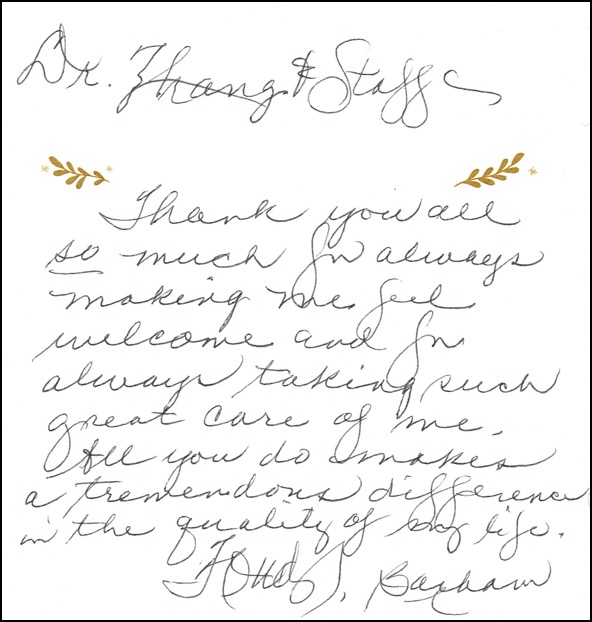 Dr. Zhang & Staff
Thank you all
so much for always
making me feel
welcome and for
always taking such
great care of me.
All you do makes
a tremendous difference
in the quality of my life.